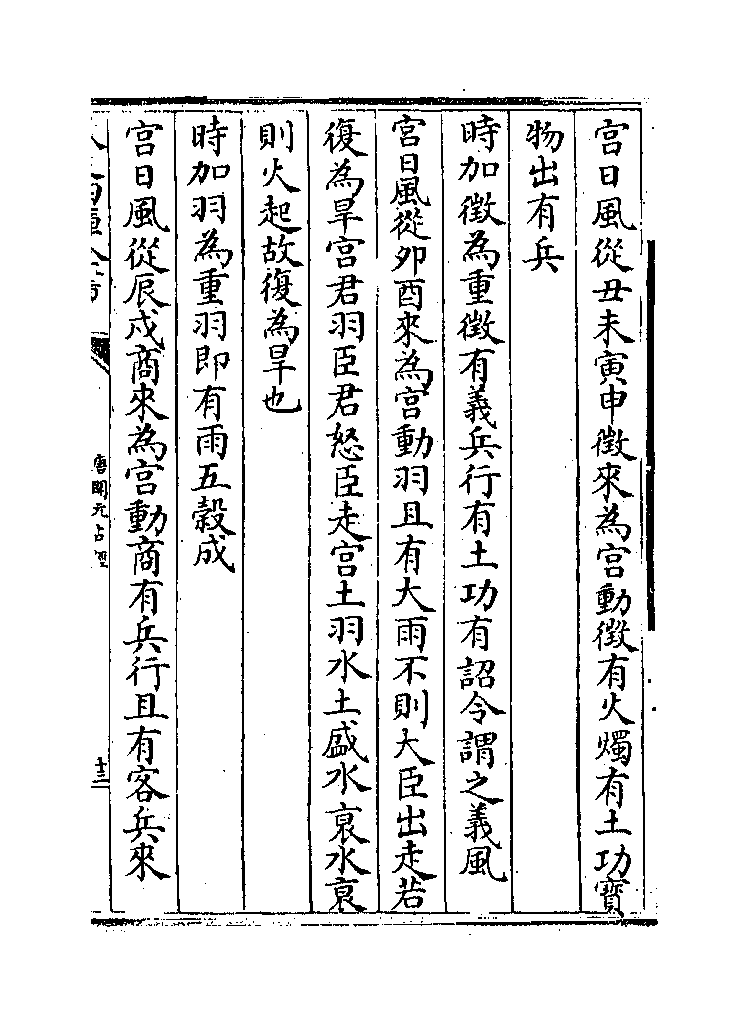 宫日風從丑未寅申徵來為宫動徵有火燭有土功寳
物出有兵
時加徵為重徵有義兵行有土功有詔令謂之義風
宫日風從卯酉來為宫動羽且有大雨不則大臣出走若
復為旱宫君羽臣君怒臣走宫土羽水土盛水衰水衰
則火起故復為旱也
時加羽為重羽即有雨五穀成
宫日風從辰戍商來為宫動商有兵行且有客兵來
唐開元占經
十三